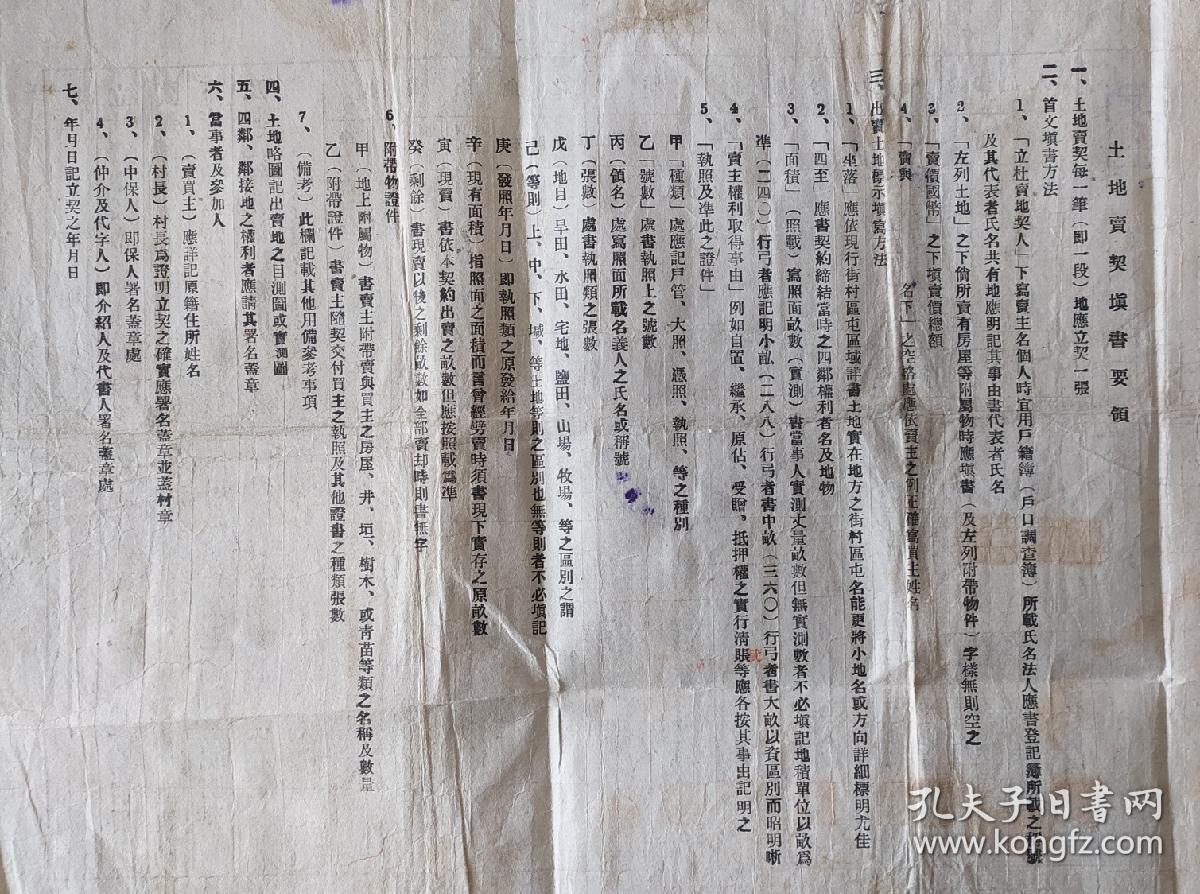 土地賣契塡書要領
一、土地賣契每一筆（即一段）地應立契一張
二、首文塡書方法
1、「立杜賣地契人」下寫賣主名個人時宜用戶籍簿（戶口調查簿）所載氏名法人應書登記簿所載之稱號
及其代表者氏名共有地應明記其事由書代表者氏名
2、「左列土地」之下倘所賣有房屋等附屬物時應塡書（及左列附帶物件）字樣無則空之
3、「賣價國幣」之下塡賣價總額
4、「賣與　　名下」之空格處應依賣主之例正確寫買主姓名
三、出賣土地標示塡寫方法
1、「坐落」應依現行街村區屯區域詳書土地實在地方之街村區屯名能更將小地名或方向詳細標明尤佳
2、「四至」應書契約締結當時之四鄰權利者名及地物
3、「面積」（照載）寫照面畝數（實測）書當事人實測丈量畝數但無實測數者不必塡記地積單位以畝爲
準（二四〇）行弓者應記明小畝（二八八）行弓者書中畝（三六〇）行弓者書大畝以資區別而昭明晰
4、「賣主權利取得事由」例如自置、繼承、原佔、受贈、抵押權之實行淸賬等應各按其事由記明之
5、「執照及準此之證件」
甲「種類」處應記戶管、大照、憑照、執照、等之種別
乙「號數」處書執照上之號數
丙（領名）處寫照面所載名義人之氏名或稱號
丁（張數）處書執照類之張數
戊（地目）旱田、水田、宅地、鹽田、山場、牧場、等之區別之謂
己（等則）上、中、下、堿、等土地等則之區別也無等則者不必塡記
庚（發照年月日）即執照類之原發給年月日
辛（現有面積）指照面之面積而言曾經劈賣時須書現下實存之原畝數
寅（現賣）書依本契約出賣之畝數但應按照載爲準
癸（剩餘）書現賣以後之剩餘畝數如全部賣却時則書無字
6、附帶物證件
甲（地上附屬物）書賣主附帶賣與買主之房屋、井、垣、樹木、或靑苗等類之名稱及數量
乙（附帶證件）書賣主隨契交付買主之執照及其他證書之種類張數
7、（備考）此欄記載其他用備參考事項
四、土地略圖記出賣地之目測圖或實測圖
五、四鄰、鄰接地之權利者應請其署名蓋章
六、當事者及參加人
1、（賣買主）應詳記原籍住所姓名
2、（村長）村長爲證明立契之確實應署名蓋章並蓋村章
3、（中保人）即保人署名蓋章處
4、（仲介及代字人）即介紹人及代書人署名蓋章處
七、年月日記立契之年月日
孔夫子旧書网
kongfz.com